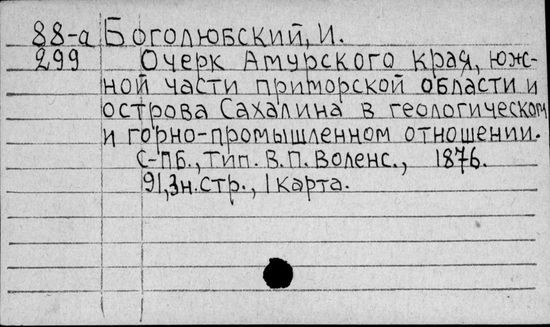 88-а Боголюбский, И.
299 Очерк Амурского края, юж-
ной части приморской области и
острова Сахалина в геологическом
и горно-промышленном отношении.
С-Пб., Тип. В.П. Воленс., 1876.
91, 3н. стр., 1 карта.